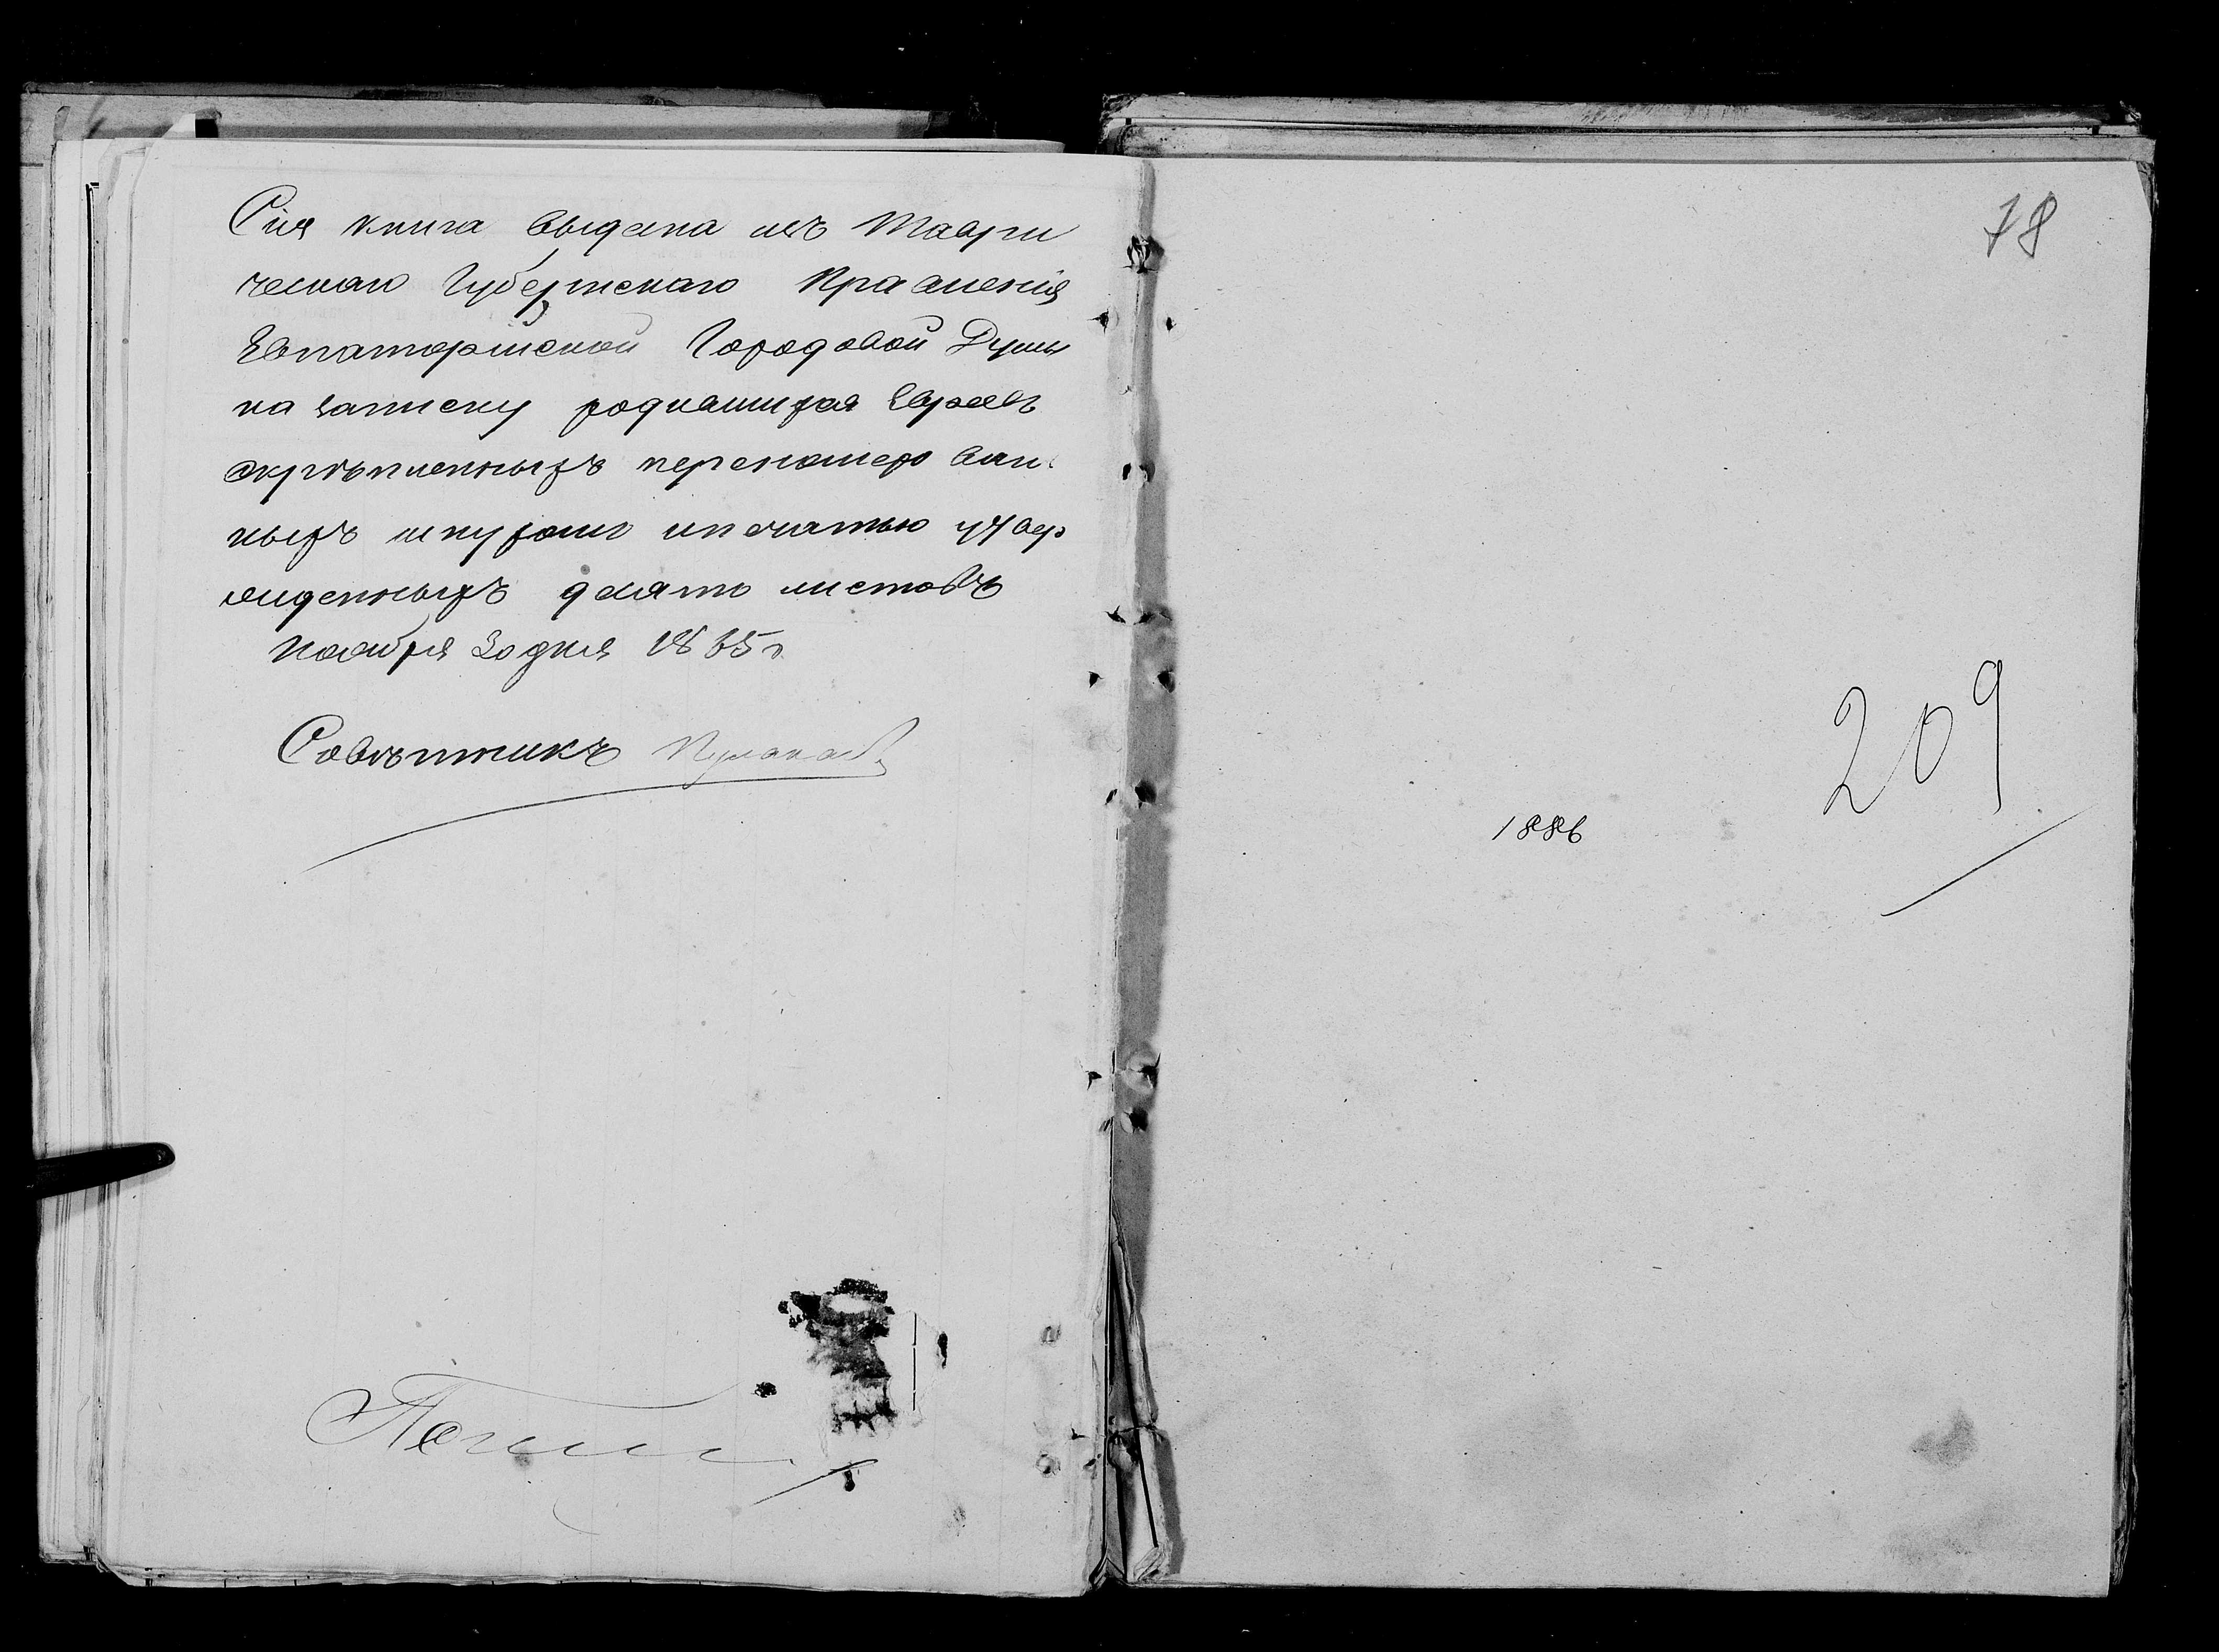 Сія книга выдана изъ Таври
ческаго Губернскаго Правленія
Евпаторійской Городовой Думы
на записку родившихся Евреевъ
скрѣпленныхъ
ныхъ шнуромъ и печатью утвер
жденныхъ девять листовъ
Ноября 30 дня 1885 г.
Совѣтникъ
78
209
1886